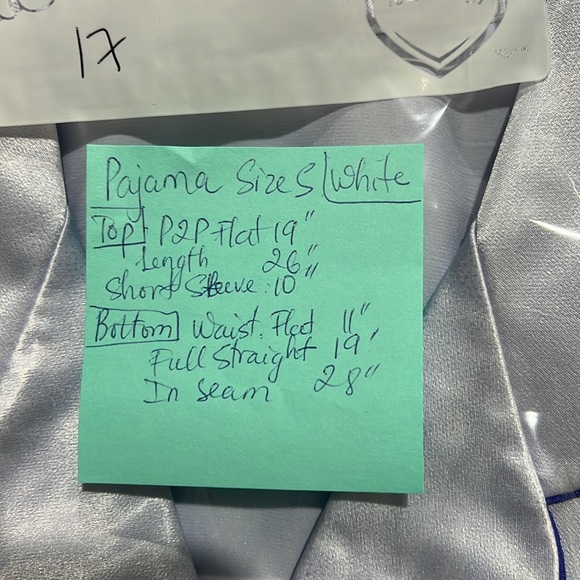 17
Pajama Size S White
Top P2P Flat 19"
Length 26"
Short Sleeve: 10"
Bottom Waist. Flat 11"
Full Straight 19"
In seam 28"